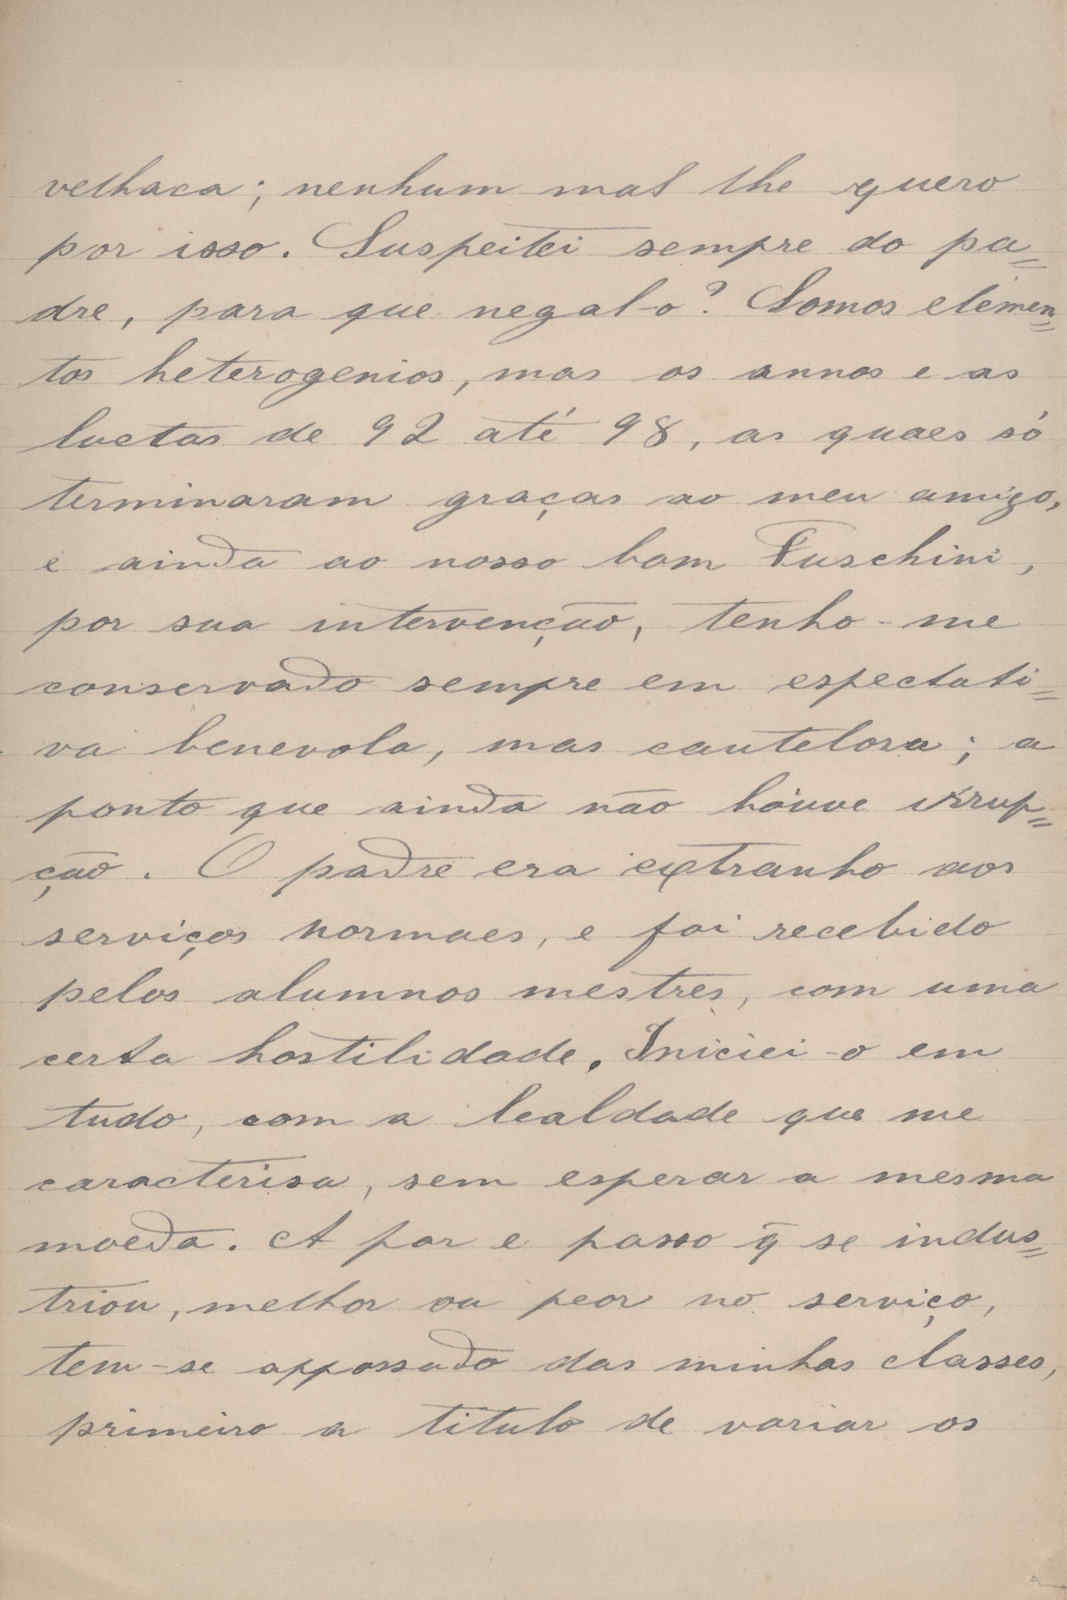 velhaca; nenhum mal lhe quero
por isso. Suspeitei sempre do pa=
dre, para que negal-o? Somos elemen=
tos heterogenios, mas os annos e as
luctas de 92 até 98, as quaes só
terminaram graças ao meu amigo,
e ainda ao nosso bom Fuschini,
por sua intervenção, tenho-me
conservado sempre em espectati=
va benevola, mas cautelosa; a
ponto que ainda não houve irrup=
ção. O padre era extranho aos
serviços normaes, e foi recebido
pelos alumnos mestres, com uma
certa hostilidade. Iniciei-o em
tudo, com a lealdade que me
caracterisa, sem esperar a mesma
moeda. A par e passo q̃ se indus=
triou, melhor ou peor no serviço,
tem-se appossado das minhas classes,
primeiro a titulo de variar os